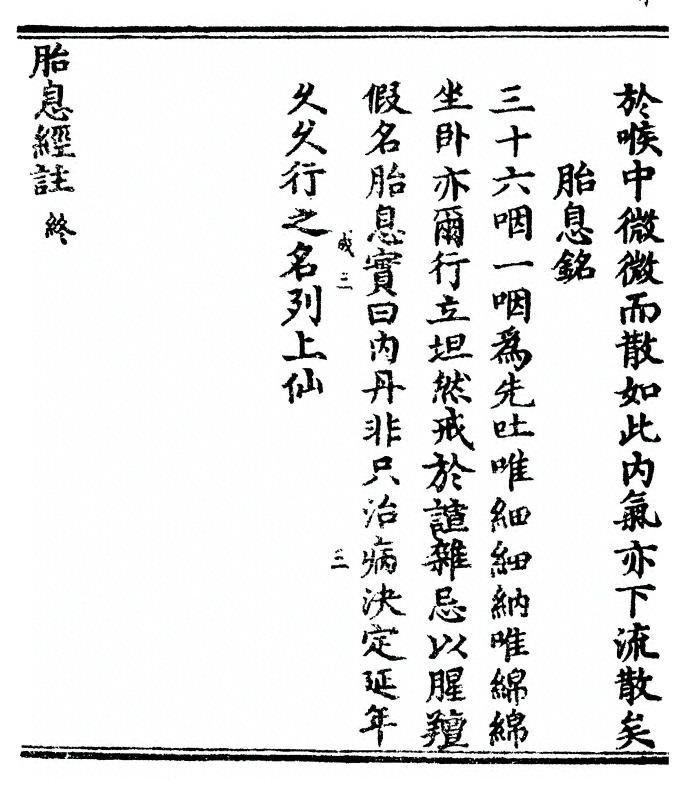 於喉中微微而散如此内氣亦下流散矣
胎息銘
三十六咽一咽爲先吐唯細細納唯綿綿
坐卧亦爾行立坦然戒於諠雜忌以腥羶
假名胎息實曰内丹非只治病決定延年
久久行之名列上仙
胎息經註 終